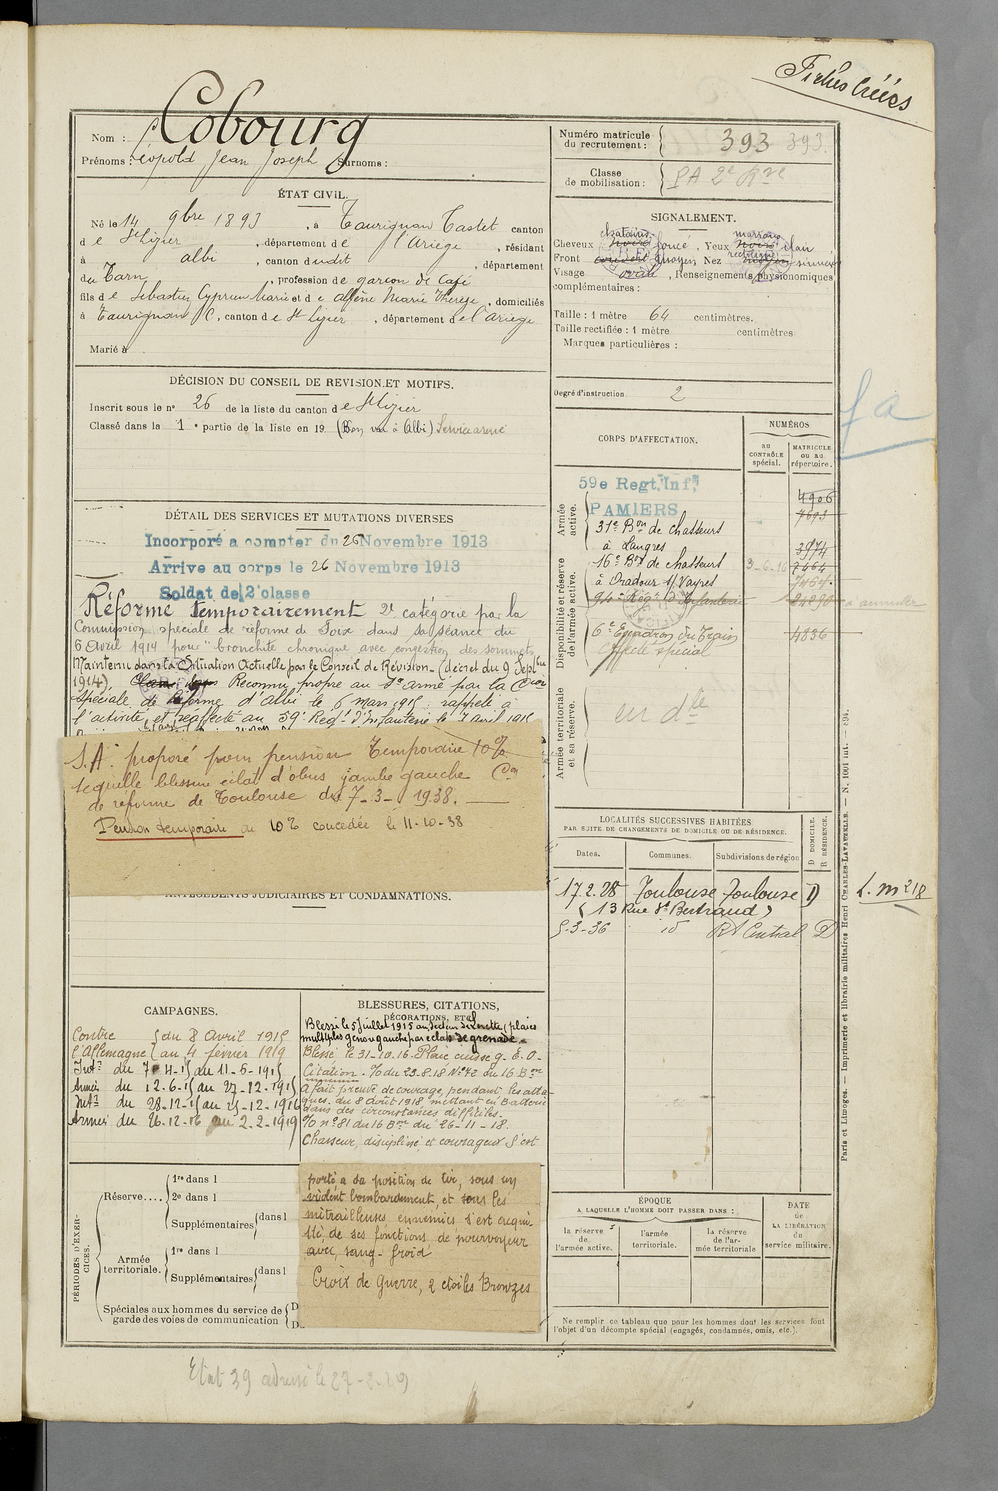 Fiches Créées
Nom : Cobourg
Prénoms : Léopold Jean Joseph Surnoms :
ÉTAT CIVIL.
Né le 14 9bre 1893, à Taurignan Castet canton
de St Lizier, département de l'Ariège, résidant
à albi, canton dudit, département
du Tarn, profession de garçon de Café
fils de Sébastien Cyprien Marie et de Marie Thérèse, domiciliés
à Taurignan C, canton de St Lizier, département de l'Ariège
Marié à
DÉCISION DU CONSEIL DE REVISION ET MOTIFS.
Inscrit sous le no 26 de la liste du canton de St Lizier
Classé dans la 1e partie de la liste en 19 (Bon vu à Albi) Service armé
DÉTAIL DES SERVICES ET MUTATIONS DIVERSES
Incorporé a compter du 26 Novembre 1913
Arrive au corps le 26 Novembre 1913
Soldat de 2e classe
Réformé Temporairement 2e catégorie par la
Commission spéciale de réforme de Foix dans sa séance du
6 avril 1914 pour "bronchite chronique avec congestion des sommets
Maintenu dans la Situation Actuelle par le Conseil de Révision (décret du 9 Septbre
1914). Reconnu propre au Sce armé par la Con
spéciale de Réforme d'Albi le 6 mars 1915 rappelé à
l'activité et réaffecté au 59e Regt d'Infanterie le 7 avril 1915
S.A. proposé pour pension Temporaire 10%
sequelle blessure éclat d'obus jambe gauche Con
de réforme de Toulouse du 7-3-1938.
Pension temporaire de 10% concédée le 11-10-38
ANTÉCÉDENTS JUDICIAIRES ET CONDAMNATIONS.
CAMPAGNES.
Contre l'Allemagne
du 8 Avril 1915
au 4 février 1919
Intr du 7-4-15 au 11-6-1915
Armées du 12-6-15 au 27-12-1915
Intr du 28-12-15 au 25-12-1916
Armées du 26-12-16 au 2-2-1919
BLESSURES, CITATIONS,
DÉCORATIONS, ETC.
Blessé le 5 Juillet 1915 au secteur de Lorette (plaies
multiples genou gauche par éclats de grenade.
Blessé le 31-10-16. Plaie cuisse g. E.O.
Citation. O/ du 23-8-18 No 72 du 16 Bon
A fait preuve de courage, pendant les atta-
ques du 8 août 1918 mettant en Batterie
dans des circonstances difficiles.
O/ no 81 du 16 Bon du 26-11-18.
Chasseur, discipliné et courageux S'est
porté à sa position de tir, sous un
violent bombardement et sous les
mitrailleuses ennemies s'est acqui-
tté de ses fonctions de pourvoyeur
avec sang-froid
Croix de Guerre, 2 étoiles Bronzes
PÉRIODES D'EXERCICES.
Réserve....
1re dans l
2e dans l
Supplémentaires dans l
Armée territoriale.
1re dans l
Supplémentaires dans l
Spéciales aux hommes du service de
garde des voies de communication
D
D
Numéro matricule du recrutement : 393 393.
Classe de mobilisation : PA 2e Rve
SIGNALEMENT.
châtains marrons
Cheveux noirs foncé, Yeux noirs clair
rectiligne
Front moyen Nez moyen
Visage ovale, Renseignements physionomiques
complémentaires :
Taille : 1 mètre 64 centimètres.
Taille rectifiée : 1 mètre centimètres
Marques particulières :
Degré d'instruction 2
CORPS D'AFFECTATION.
NUMÉROS
AU CONTRÔLE spécial.
MATRICULE ou au répertoire.
Armée active.
59e Regt. Inf.
PAMIERS
4906
31e Bon de Chasseurs
à Langres
3974
Disponibilité et réserve de l'armée active.
16e Bon de chasseurs 3-6-16 7464
à Oradour s/ Vayres
94e Régt d'Infanterie à annuler
6e Escadron du Train 4836
Affecté spécial
Armée territoriale et sa réserve.
fa
LOCALITÉS SUCCESSIVES HABITÉES
PAR SUITE DE CHANGEMENTS DE DOMICILE OU DE RÉSIDENCE.
Dates. Communes. Subdivisions de région D DOMICILE. R RÉSIDENCE.
17.2.28 Toulouse Toulouse D
(13 Rue St Bertrand)
5-3-36 id Rt Central D
L. m 218
ÉPOQUE
A LAQUELLE L'HOMME DOIT PASSER DANS :
la réserve de l'armée active.
l'armée territoriale.
la réserve de l'armée territoriale
DATE de LA LIBÉRATION du service militaire.
Ne remplir ce tableau que pour les hommes dont les services font
l'objet d'un décompte spécial (engagés, condamnés, omis, etc.).
Paris et Limoges. — Imprimerie et librairie militaires Henri CHARLES-LAVAUZELLE. — N. 1001 int. —
Etat 39 adressé le 27-2-19